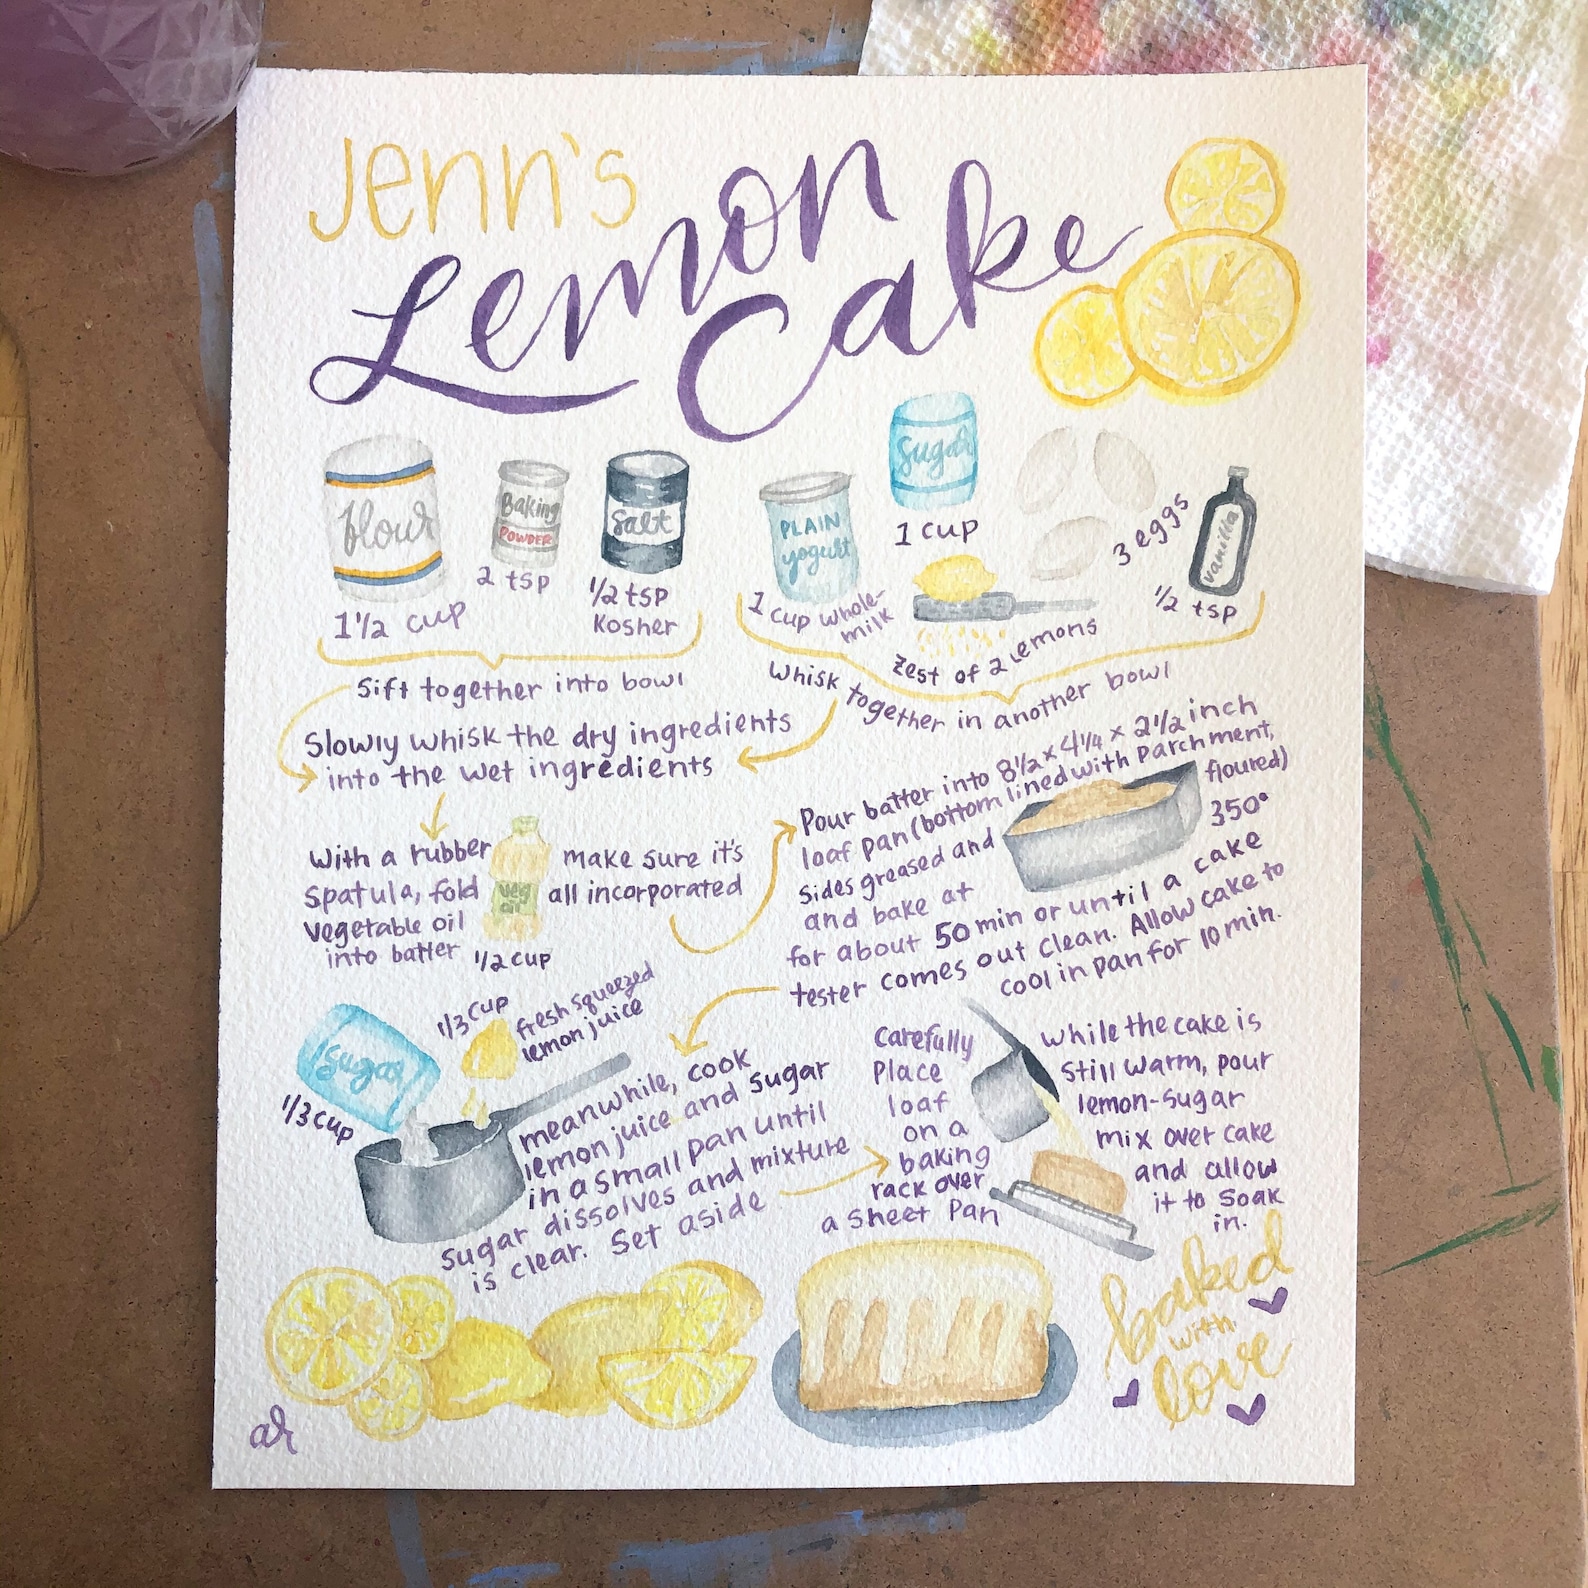 Jenn's
Lemon
Cake
flour
1 1/2 cup
Baking
POWDER
2 tsp
Salt
1/2 tsp
Kosher
PLAIN
yogurt
1 cup whole-
milk
Sugar
1 cup
zest of 2 lemons
3 eggs
vanilla
1/2 tsp
Sift together into bowl
Whisk together in another bowl
Slowly whisk the dry ingredients
into the wet ingredients
With a rubber
spatula, fold
vegetable oil
into batter
veg
oil
1/2 cup
make sure it's
all incorporated
Pour batter into 8 1/2 x 4 1/4 x 2 1/2 inch
loaf pan (bottom lined with parchment,
sides greased and floured)
and bake at 350°
for about 50 min or until a cake
tester comes out clean. Allow cake to
cool in pan for 10 min.
Sugar
1/3 cup
1/3 cup
fresh squeezed
lemon juice
meanwhile, cook
lemon juice and sugar
in a small pan until
sugar dissolves and mixture
is clear. Set aside
Carefully
place
loaf
on a
baking
rack over
a sheet pan
While the cake is
still warm, pour
lemon-sugar
mix over cake
and allow
it to soak
in.
baked
with
love
ar